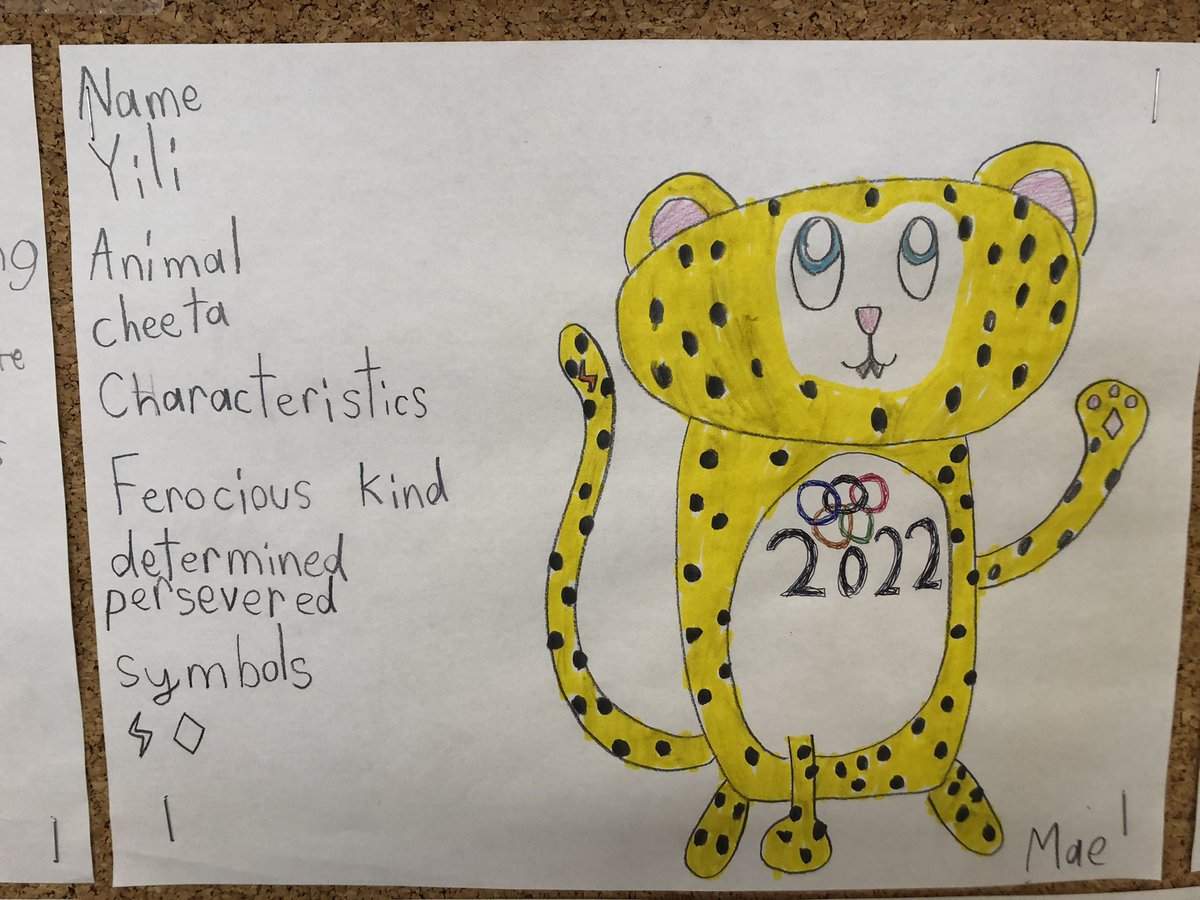 Name
Yili
Animal
cheeta
Characteristics
Ferocious kind
determined
persevered
symbols
2022
Mae